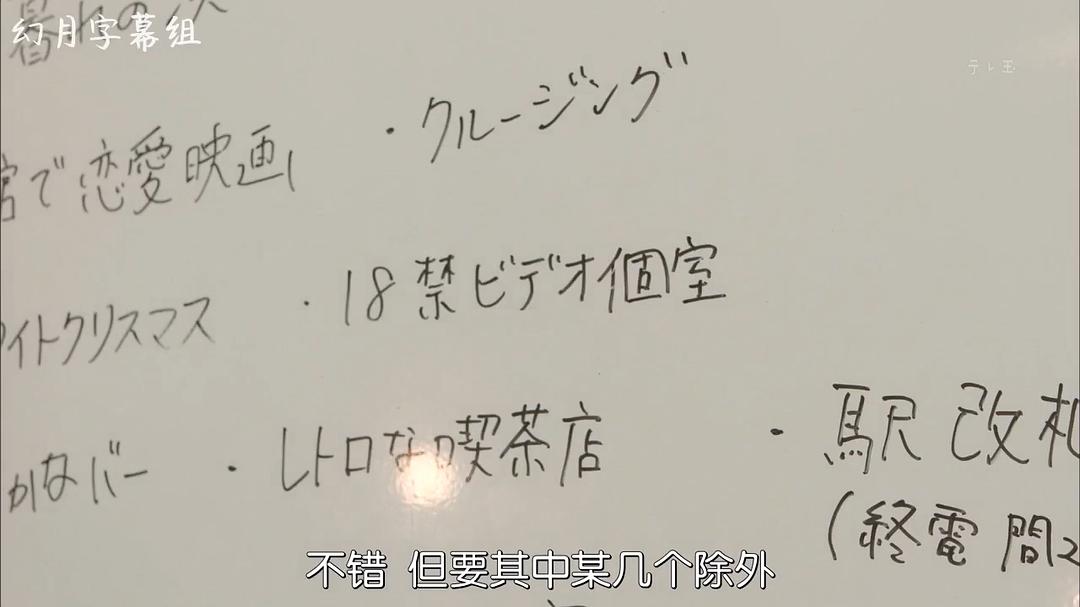 幻月字幕組
テレ玉
暮れの
・クルージング
で恋愛映画
・18禁ビデオ個室
イトクリスマス
・レトロな喫茶店
かなバー
・駅改札
(終電間
不错 但要其中某几个除外